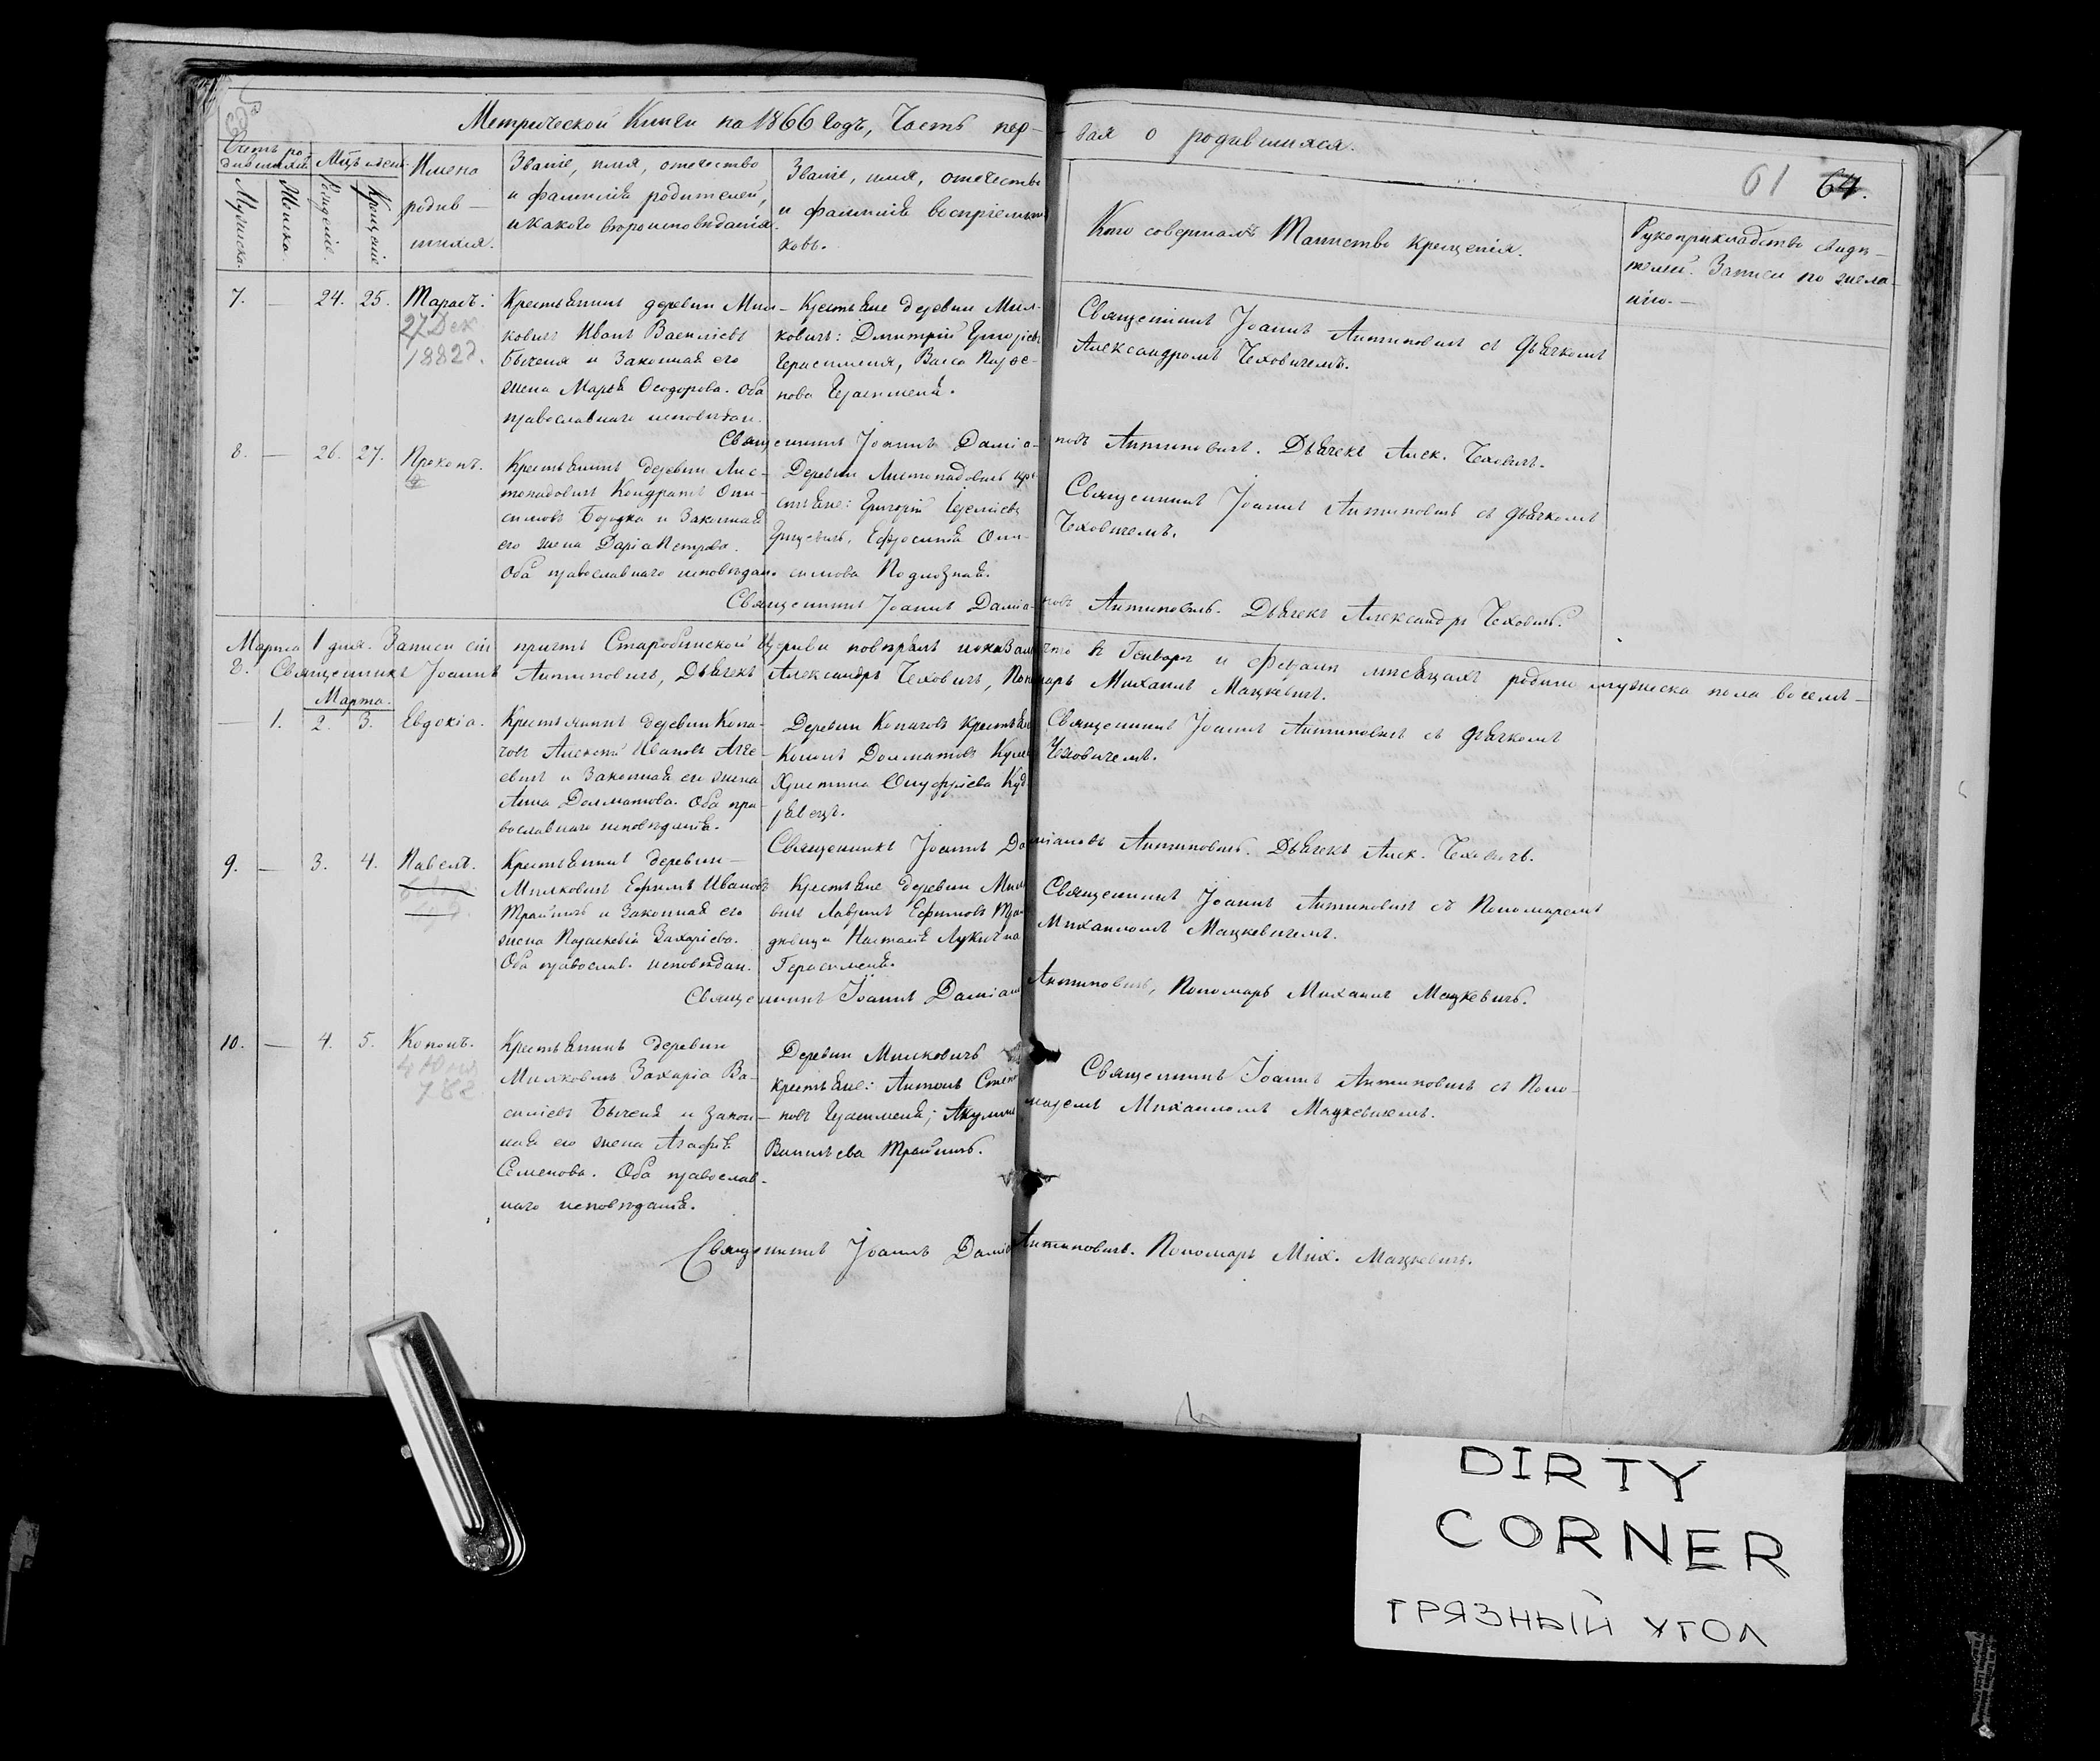 Метрической Книги на 1866 годъ, Часть пер-
вая о родившихся.
61 64.
Счетъ ро-
дившихся
Мужеска.
Женска.
Мѣс. и дни.
Рожденіе.
Крещеніе
Имена
родив-
шихся.
Званіе, имя, отечество
и фамилія родителей,
и какого вѣроисповѣданія.
Званіе, имя, отечество
и фамилія воспріемни
ковъ.
Кто совершалъ Таинство Крещенія.
Рукоприкладство свидѣ-
телей. Записи по жела-
нію.
7. — 24. 25. Тарасъ.
27 Дек
1882.
Крестьянинъ деревни Мил-
ковичъ Иванъ Василіевъ
Быченя и Законная его
жена Марья Ѳеодорова. Оба
православнаго исповѣдан.
Крестьяне деревни Мил-
ковичъ: Димитрій Григоріевъ
Герасименя, Васса
нова Герасименя.
Священникъ Іоаннъ Антиповичъ съ дьячкомъ
Александромъ Чеховичемъ.
Священникъ Іоаннъ Даміа-новъ Антиповичъ. Дьячекъ Алек. Чеховичъ.
8. — 26. 27. Прокопъ.
Крестьянинъ деревни Лис-
топадовичъ Кондратъ Они-
симовъ Бородка и Законная
его жена Дарія Петрова.
Оба православнаго исповѣдан.
Деревни Листопадовичъ кре-
стьяне: Григорій
Грицевичъ, Ефросинія Они-
симова Подлозная.
Священникъ Іоаннъ Антиповичъ съ дьячкомъ
Чеховичемъ.
Священникъ Іоаннъ Даміа-новъ Антиповичъ. Дьячекъ Александръ Чеховичъ.
Марта 1 дня. Записи сіи причтъ Старобинской Церкви повѣрялъ и показалъ что въ Генварѣ и Февралѣ мѣсяцахъ родилось мужеска пола восемь-
8. Священникъ Іоаннъ Антиповичъ, Дьячекъ Александръ Чеховичъ, Пономарь Михаилъ Мацкевичъ.
Марта.
— 1. 2. 3. Евдокіа.
Крестьянинъ деревни Копа-
човъ Алексѣй Ивановъ Аге-
евичъ и Законная его жена
Анна Долматова. Оба пра-
вославнаго исповѣданія.
Деревни Копачовъ крестьян
Кононъ Долматовъ
Христина Онуфріева Куд
рявецъ.
Священникъ Іоаннъ Антиповичъ съ дьячкомъ
Чеховичемъ.
Священникъ Іоаннъ Даміановъ Антиповичъ. Дьячекъ Алек. Чеховичъ.
9. — 3. 4. Павелъ.
Крестьянинъ деревни—
Милковичъ Ефимъ Ивановъ
Трайничъ и Законная его
жена Параскевія Захаріева.
Оба православ. исповѣдан.
Крестьяне деревни Милко
вичъ Лавринъ Ефимовъ
дѣвица Наталія Лукична
Герасименя.
Священникъ Іоаннъ Антиповичъ съ Пономаремъ
Михаиломъ Мацкевичемъ.
Священникъ Іоаннъ Даміан Антиповичъ, Пономарь Михаилъ Мацкевичъ.
10. — 4. 5. Кононъ.
Крестьянинъ деревни
Милковичъ Захарія Ва-
силіевъ Быченя и Закон-
ная его жена Агафія
Семенова. Оба православ-
наго исповѣданія.
Деревни Милковичъ
крестьяне: Антонъ Степа
новъ Герасименя; Акулина
Васильева Трайничъ.
Священникъ Іоаннъ Антиповичъ съ Поно-
маремъ Михаиломъ Мацкевичемъ.
Священникъ Іоаннъ Даміа Антиповичъ. Пономарь Мих. Мацкевичъ.
DIRTY
CORNER
ГРЯЗНЫЙ УГОЛ